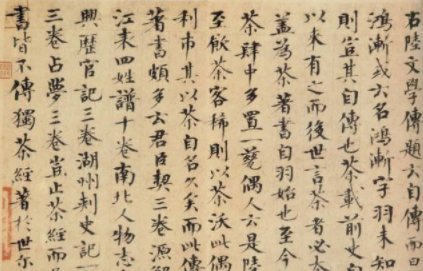 右陸文學傳題云自傳而曰
鴻漸或云名鴻漸字羽未知
則豈其自傳也茶載前史自
以來有之而後世言茶者必本
蓋為茶著書自羽始也至今
茶肆中多置一甆偶人云是陸
至飲茶客稀則以茶沃此偶
利市其以茶自名久矣而此傳
著書頗多云君臣契三卷源解
江表四姓譜十卷南北人物志
興歷官記三卷湖州刺史記一
三卷占夢三卷豈止茶經而已
書皆不傳獨茶經著於世尔